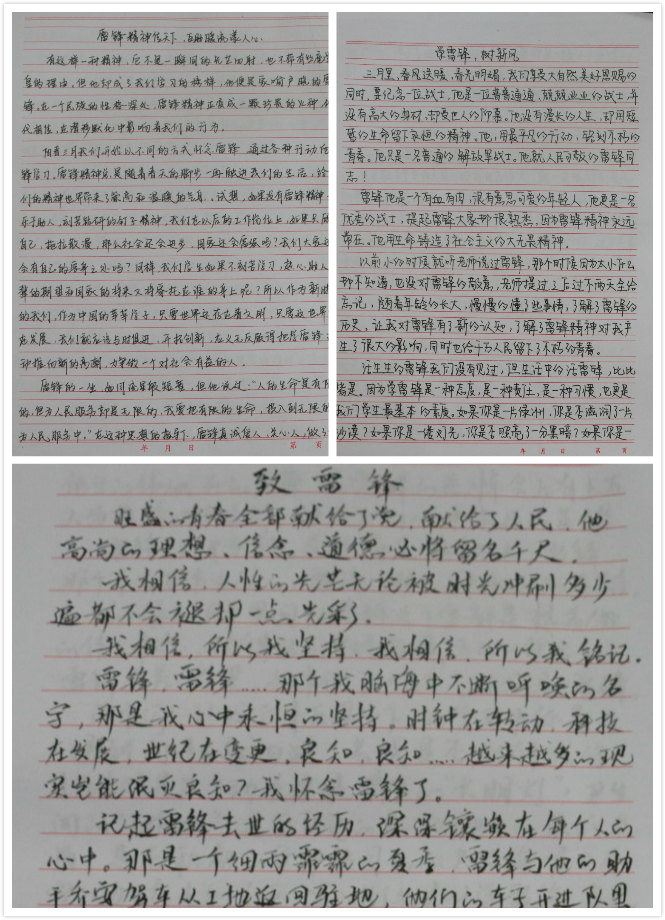 雷锋精神传天下，温暖满人心
有这样一种精神，它不是一瞬间的光芒四射，也不带有热度
息的理由，但他却成了我们学习的榜样，他便是家喻户晓的雷
锋。在一个民族的性格深处，雷锋精神正虔诚一颗的火种，
代相传，在潜移默化中影响着我们的行为。
阳春三月我们开始以不同的方式怀念雷锋，通过各种行动
锋学习。雷锋精神总是随着春天的脚步一再融进我们的生活，给
们的精神世界带来了崇高和温暖的气息。试想，如果没有雷锋精神
乐于助人，刻苦钻研的钉子精神，我们在以后的工作岗位上，如果只
自己，拖拉散漫，那么社会还会进步，国家还会富强吗？我们大家还
会有自己的居身之处吗？同样我们学生如果不刻苦学习，热心助人
辈的期望和国家的将来又将寄托在谁的身上呢？所以作为新时
的我们，作为中国的莘莘学子，只要世界还存在着文明，只要这世界
在发展，我们就应该与时俱进，开拓创新，在义无反顾得把学雷锋
种推向新的高潮，力争做一个对社会有益的人。
雷锋的一生，如同流星般短暂，但他说过：“人的生命是有
的，但为人民服务却是无限的，我要把有限的生命，投入到无限的
为人民服务中。”在这种思想的指引下，雷锋真诚待人，关心人，做
年 月 日 第 页
学雷锋，树新风
三月里，春风送暖，春光明媚，我们享受大自然美好恩赐的
同时，要纪念一位战士，他是一位普普通通、兢兢业业的战士，并
没有高大的身材，却受世人的仰慕。他没有漫长的人生，却用短
暂的生命留下永恒的精神，他，用最平凡的行动，铭刻不朽的
青春。他只是一名普通的解放军战士。他就人民可敬的雷锋同
志！
雷锋他是一个有血有肉，很有意思可爱的年轻人，他更是一名
优秀的战士，提起雷锋大家都很熟悉，因为雷锋精神永远
常在。他用生命铸造了社会主义的大无畏精神。
以前小的时候就听老师说过雷锋，那个时候因为太小什么
都不知道，也没对雷锋的敬意，老师提过之后过不两天全给
忘记，随着年龄的长大，慢慢的懂了些事情，了解了雷锋的
历史，让我对雷锋有了新的认知，了解了雷锋精神对我产
生了很大的影响，同时也给千万人民留下了不朽的青春。
活生生的雷锋我们没有见过，但生活中的活雷锋，比比
皆是。因为学雷锋是一种态度，是一种责任，是一种习惯，也更是
我们学生最基本的素质。如果你是一片绿洲，你是否滋润了一片
沙漠？如果你是一缕灯光，你是否照亮了一分黑暗？如果你是一
年 月 日 第 页
致雷锋
旺盛的青春全部献给了党，献给了人民，他
高尚的理想、信念、道德必将留名千尺。
我相信，人性的光芒无论被时光冲刷多少
遍都不会褪却一点光彩。
我相信，所以我坚持，我相信，所以我铭记。
雷锋，雷锋……那个我脑海中不断呼唤的名
字，那是我心中永恒的坚持。时钟在转动，科技
在发展，世纪在变更，良知，良知……越来越多的现
实岂能泯灭良知？我怀念雷锋了。
记起雷锋去世的经历，深深镶嵌在每个人的
心中。那是一个细雨霏霏的夏季，雷锋与他的助
手乔安驾车从工地返回驻地，他们的车子开进队里